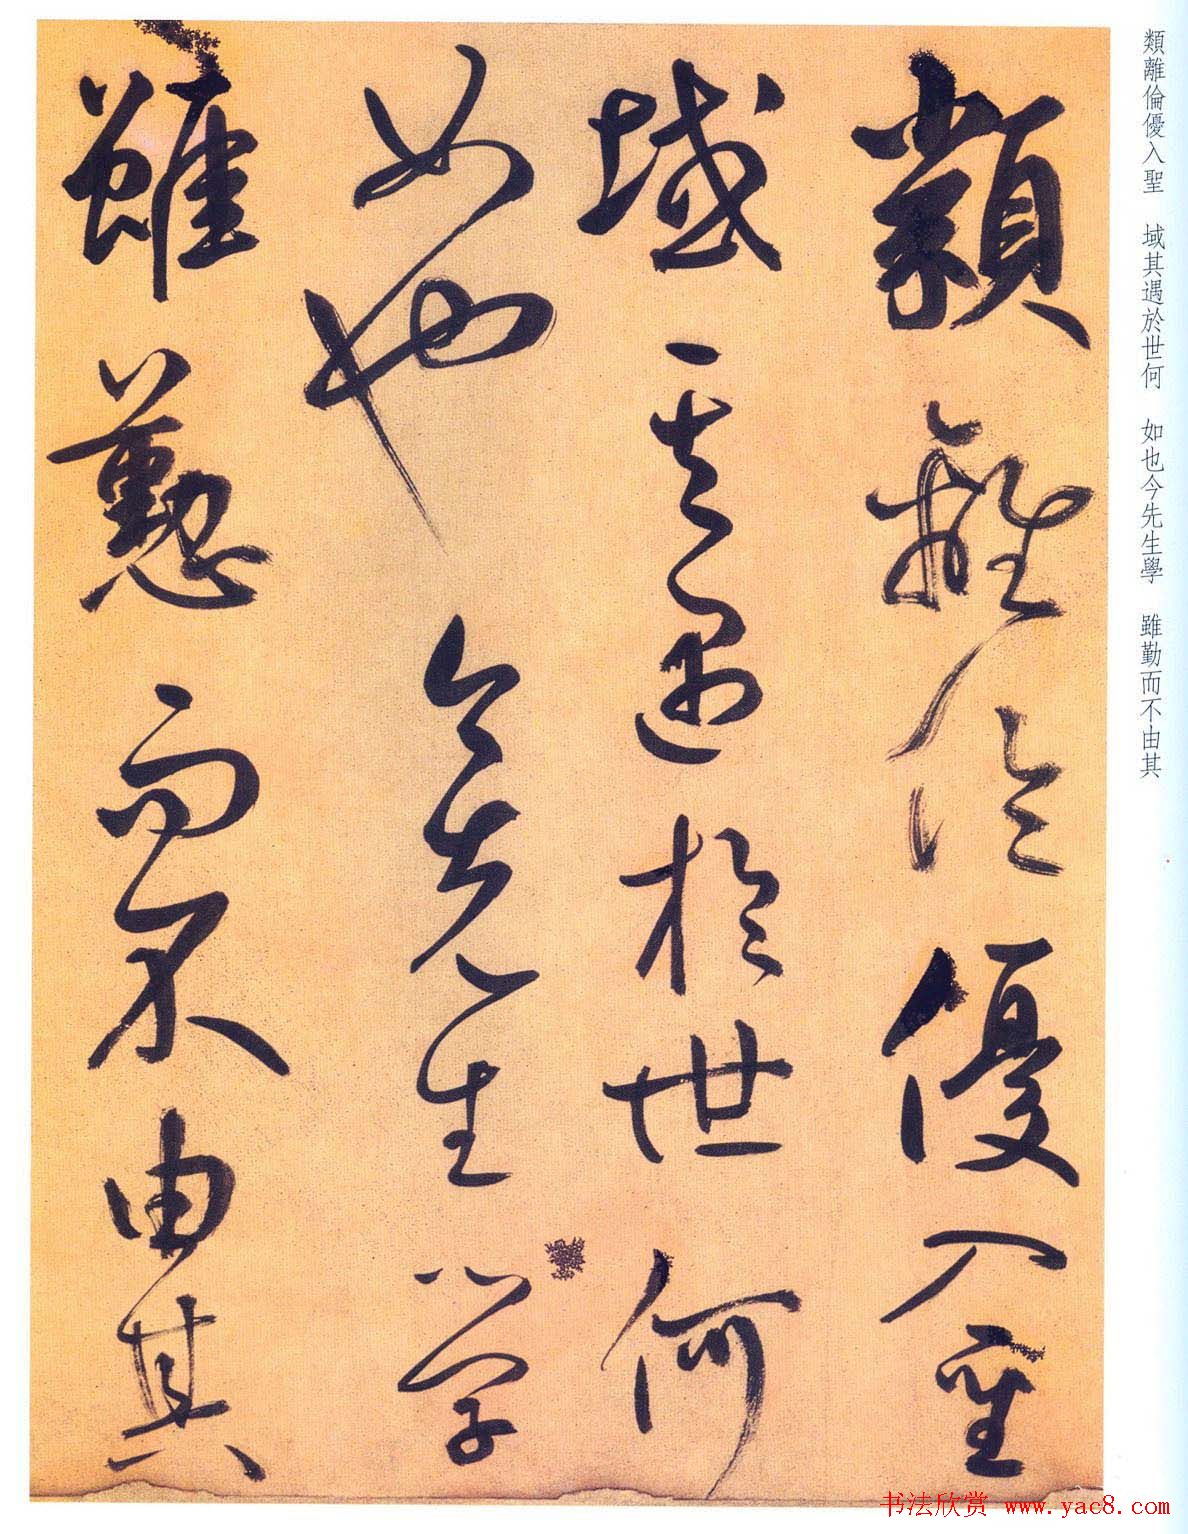 類離倫優入聖
域其遇於世何
如也今先生學
雖懃而不由其
類離倫優入聖　域其遇於世何　如也今先生學　雖勤而不由其
书法欣赏 www.yac8.com